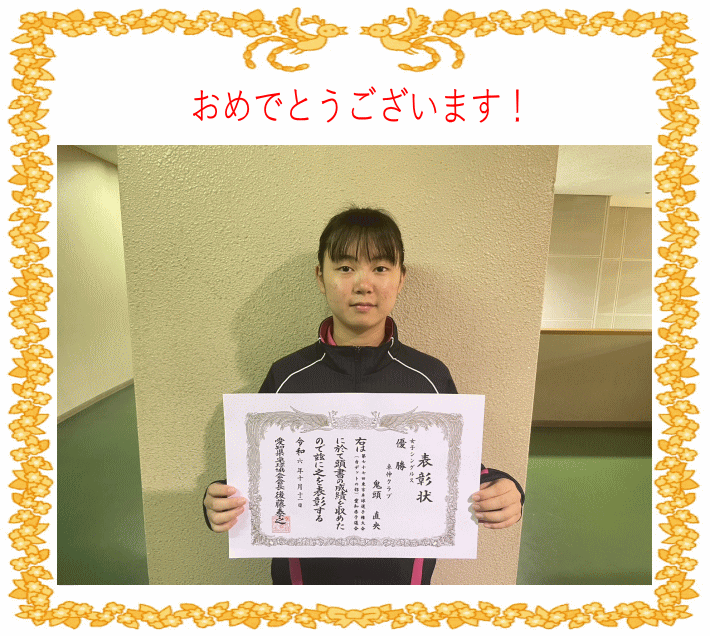 おめでとうございます！
表彰状
女子シングルス
優勝
卓伸クラブ
鬼頭 直央
右は
に於て頭書の成績を収めた
ので茲に之を表彰する
令和六年十月十二日
愛知県卓球協会会長 後藤泰之